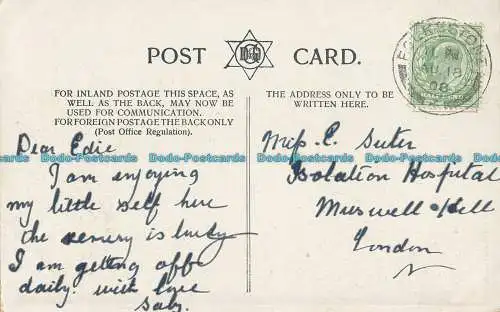 POST CARD.
D&G
FOLKESTONE
18
08
FOR INLAND POSTAGE THIS SPACE, AS
WELL AS THE BACK, MAY NOW BE
USED FOR COMMUNICATION.
FOR FOREIGN POSTAGE THE BACK ONLY
(Post Office Regulation).
THE ADDRESS ONLY TO BE
WRITTEN HERE.
Dear Edie
I am enjoying
my little self here
the scenery is lovely
I am getting off
daily. with love
Miss E. Suter
Isolation Hospital
Muswell Hill
London
N
Dodo-Postcards Dodo-Postcards Dodo-Postcards Dodo-Postcards Dodo-Postcards Dodo-Postcards